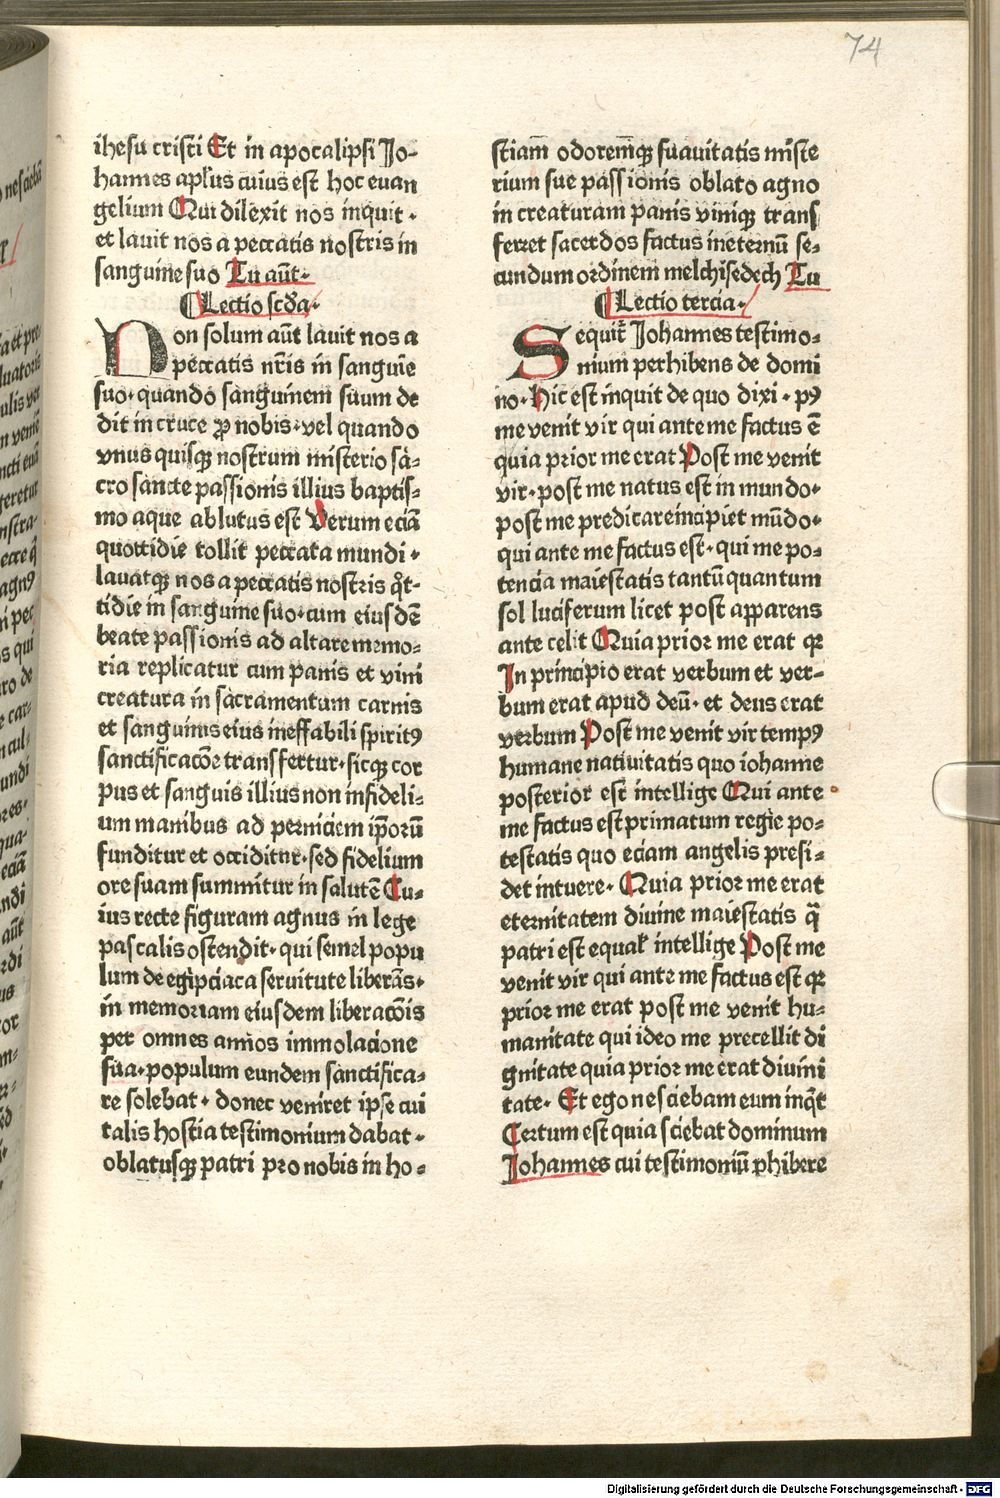 74
ihesu cristi Et in apocalipsi Jo-
hannes apl'us cuius est hoc euan
gelium Qui dilexit nos inquit ·
et lauit nos a peccatis nostris in
sanguine suo Tu aūt·
Lectio scd̄a·
Non solum aūt lauit nos a
peccatis nr̄is in sanguīe
suo· quando sanguinem suum de
dit in cruce ꝓ nobis· vel quando
vnus quisqꝫ nostrum misterio sa-
cro sancte passionis illius baptis-
mo aque ablutus est Verum eciā
quottidie tollit peccata mundi ·
lauatqꝫ nos a peccatis nostris q̄t-
tidie in sanguine suo· cum eiusdē
beate passionis ad altare memo-
ria replicatur cum panis et vini
creatura in sacramentum carnis
et sanguinis eius ineffabili spiritꝯ
sanctificacōe transfertur· sicqꝫ cor
pus et sanguis illius non infideli-
um manibus ad perniciem ip̄orū
funditur et occiditur· sed fidelium
ore suam summitur in salutē Cu-
ius recte figuram agnus in lege
pascalis ostendit· qui semel popu
lum de egipciaca seruitute liberās·
in memoriam eiusdem liberacōis
per omnes annos immolacione
sua· populum eundem sanctifica-
re solebat· donec veniret ipse cui
talis hostia testimonium dabat·
oblatusqꝫ patri pro nobis in ho-
stiam̄ odorem̄qꝫ suauitatis mīste
rium sue passionis oblato agno
in creaturam panis viniqꝫ trans
ferret sacerdos factus ineternū se-
cundum ordinem melchisedech Tu
Lectio tercia·
Sequit᷑ Johannes testimo-
nium perhibens de domi
no· Hic est inquit de quo dixi· pꝯ
me venit vir qui ante me factus ē
quia prior me erat Post me venit
vir· post me natus est in mundo·
post me predicare incipiet mūdo·
qui ante me factus est· qui me po-
tencia maiestatis tantū quantum
sol luciferum licet post apparens
ante celit Quia prior me erat qꝛ
In principio erat verbum et ver-
bum erat apud deū· et deus erat
verbum Post me venit vir tempꝯ
humane natiuitatis quo iohanne
posterior est intellige Qui ante
me factus est primatum regie po-
testatis quo eciam angelis presi-
det intuere· Quia prior me erat
eternitatem diuine maiestatis q̄
patri est equal' intellige Post me
venit vir qui ante me factus est qꝛ
prior me erat post me venit hu-
manitate qui ideo me precellit di
gnitate quia prior me erat diuini
tate· Et ego nesciebam eum inq̄t
Certum est quia sciebat dominum
Johannes cui testimoniū ꝑhibere
Digitalisierung gefördert durch die Deutsche Forschungsgemeinschaft - DFG